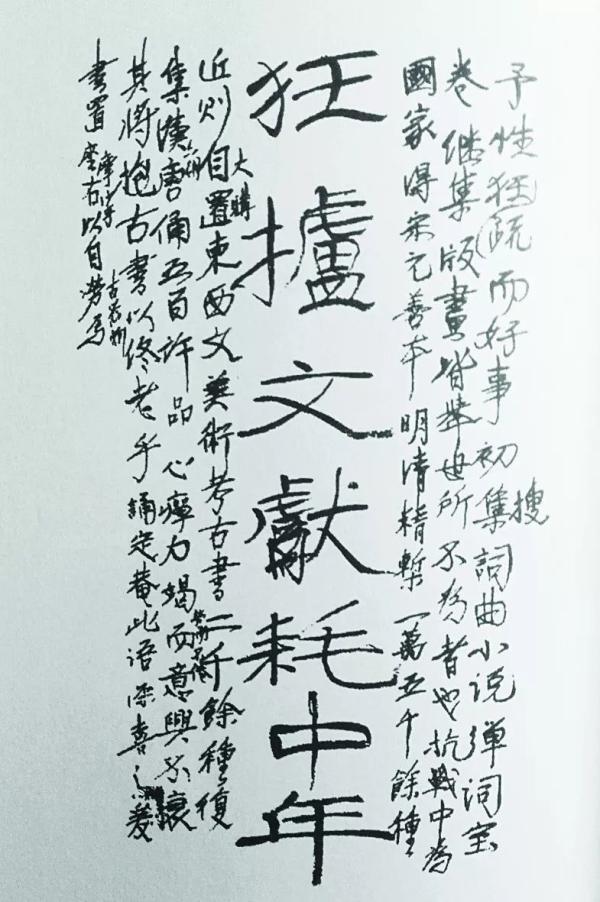 予性狂疏而好事初搜集詞曲小说弹词宝
卷继集版畫皆舉世所不为者也抗戰中為
國家得宋元善本明清精槧一萬五千餘種
狂攎文獻耗中年
近则大購自置東西文美術考古書二千餘種復
集漢唐俑五百許品心瘁力竭而意興不衰
其將抱古書以终老乎誦定菴此语深喜之爰
書置座右以自勞焉